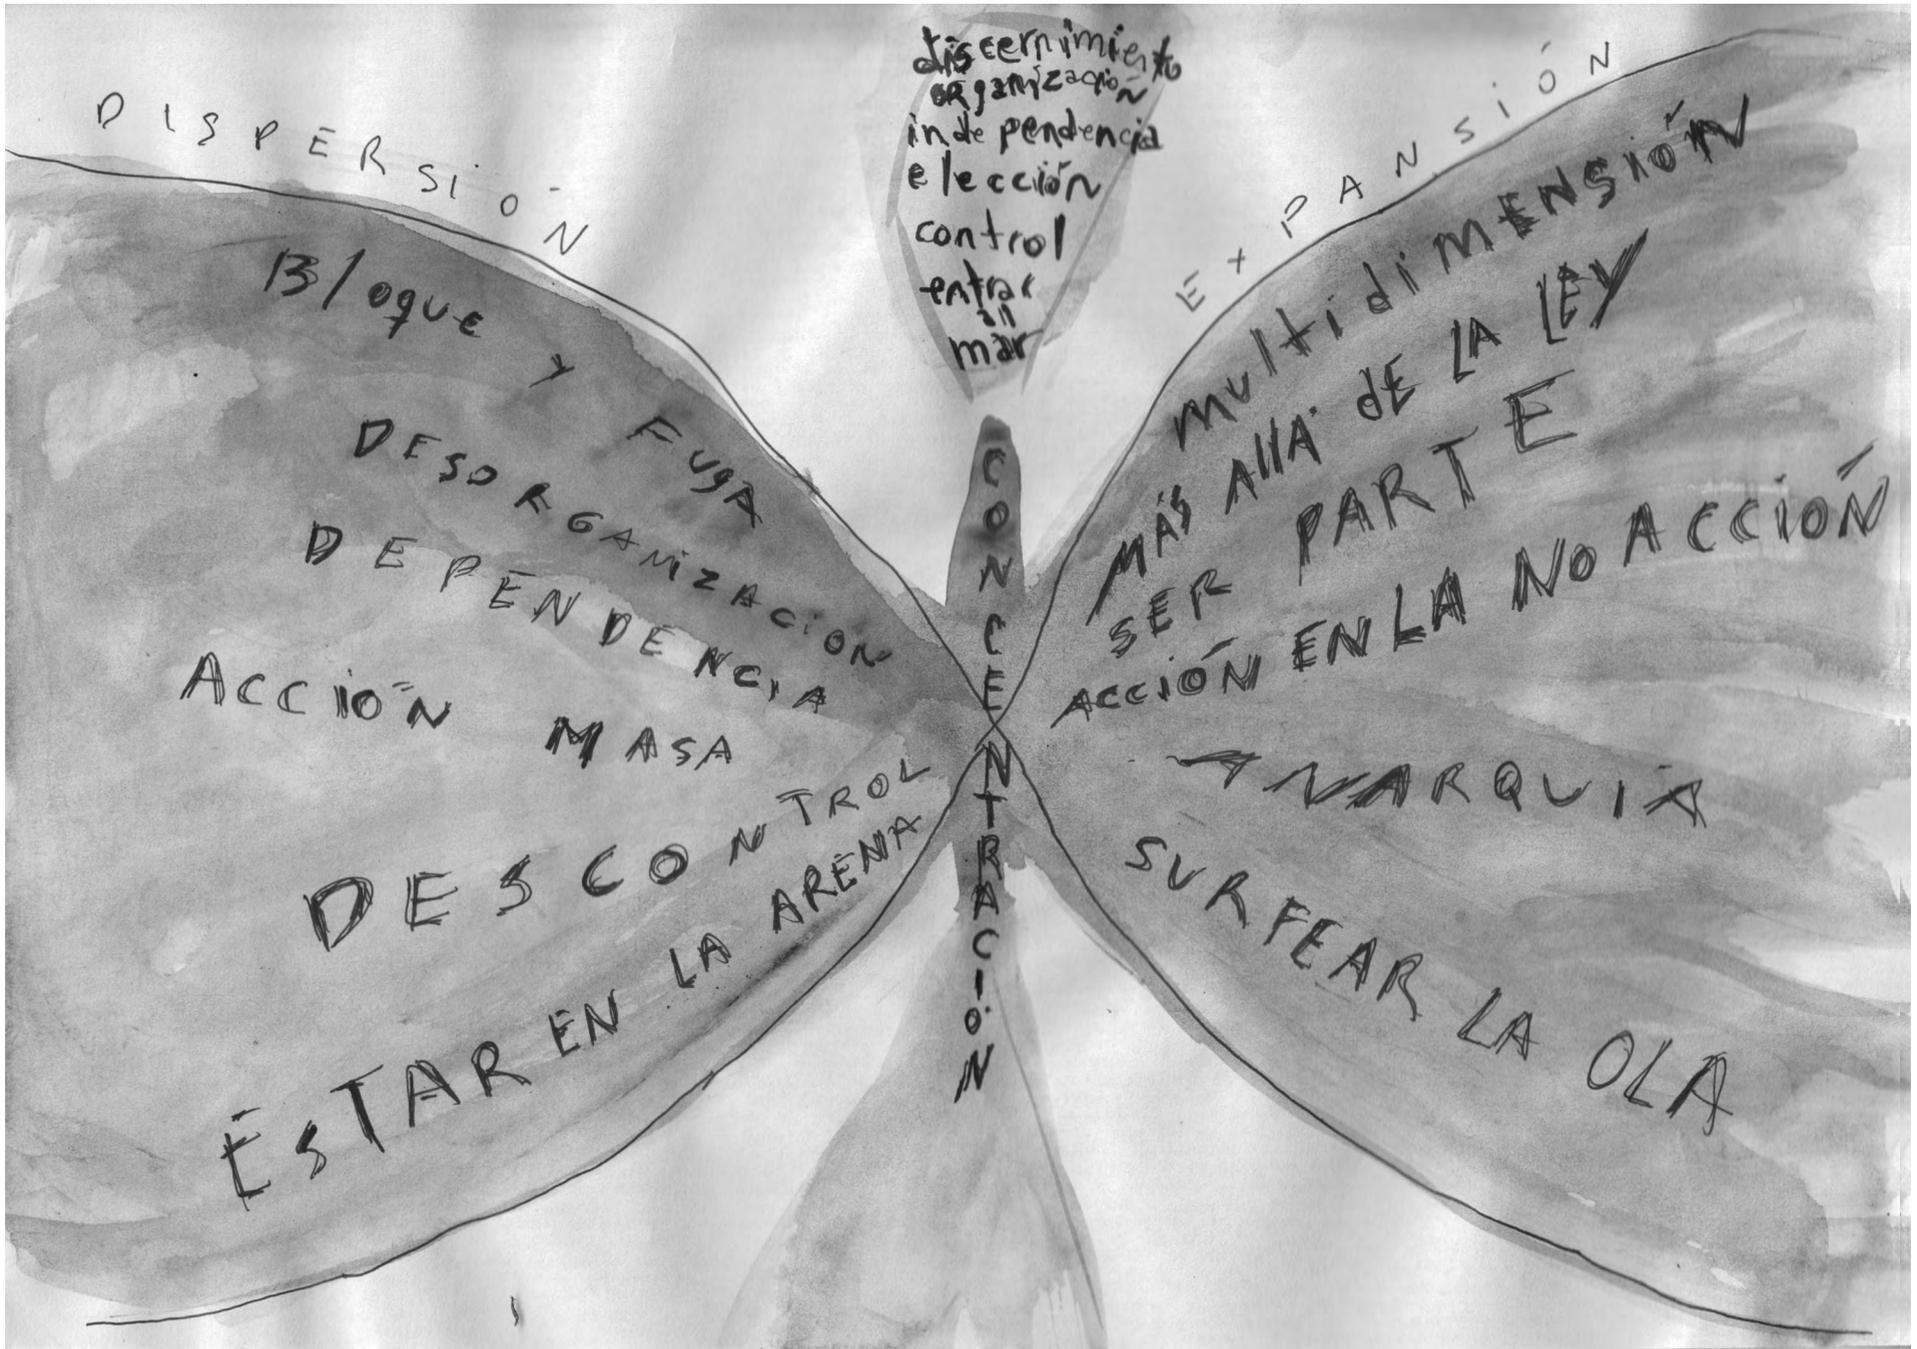 DISPERSIÓN
Bloque y FUGA
DESORGANIZACIÓN
DEPENDENCIA
ACCIÓN MASA
DESCONTROL
ESTAR EN LA ARENA
discernimiento
ORganización
independencia
elección
control
entrar
al
mar
CONCENTRACIÓN
EXPANSIÓN
multidimENSIÓN
MÁS AllÁ dE LA LEY
SER PARTE
ACCIÓN EN LA NO ACCIÓN
ANARQUIA
SURFEAR LA OLA